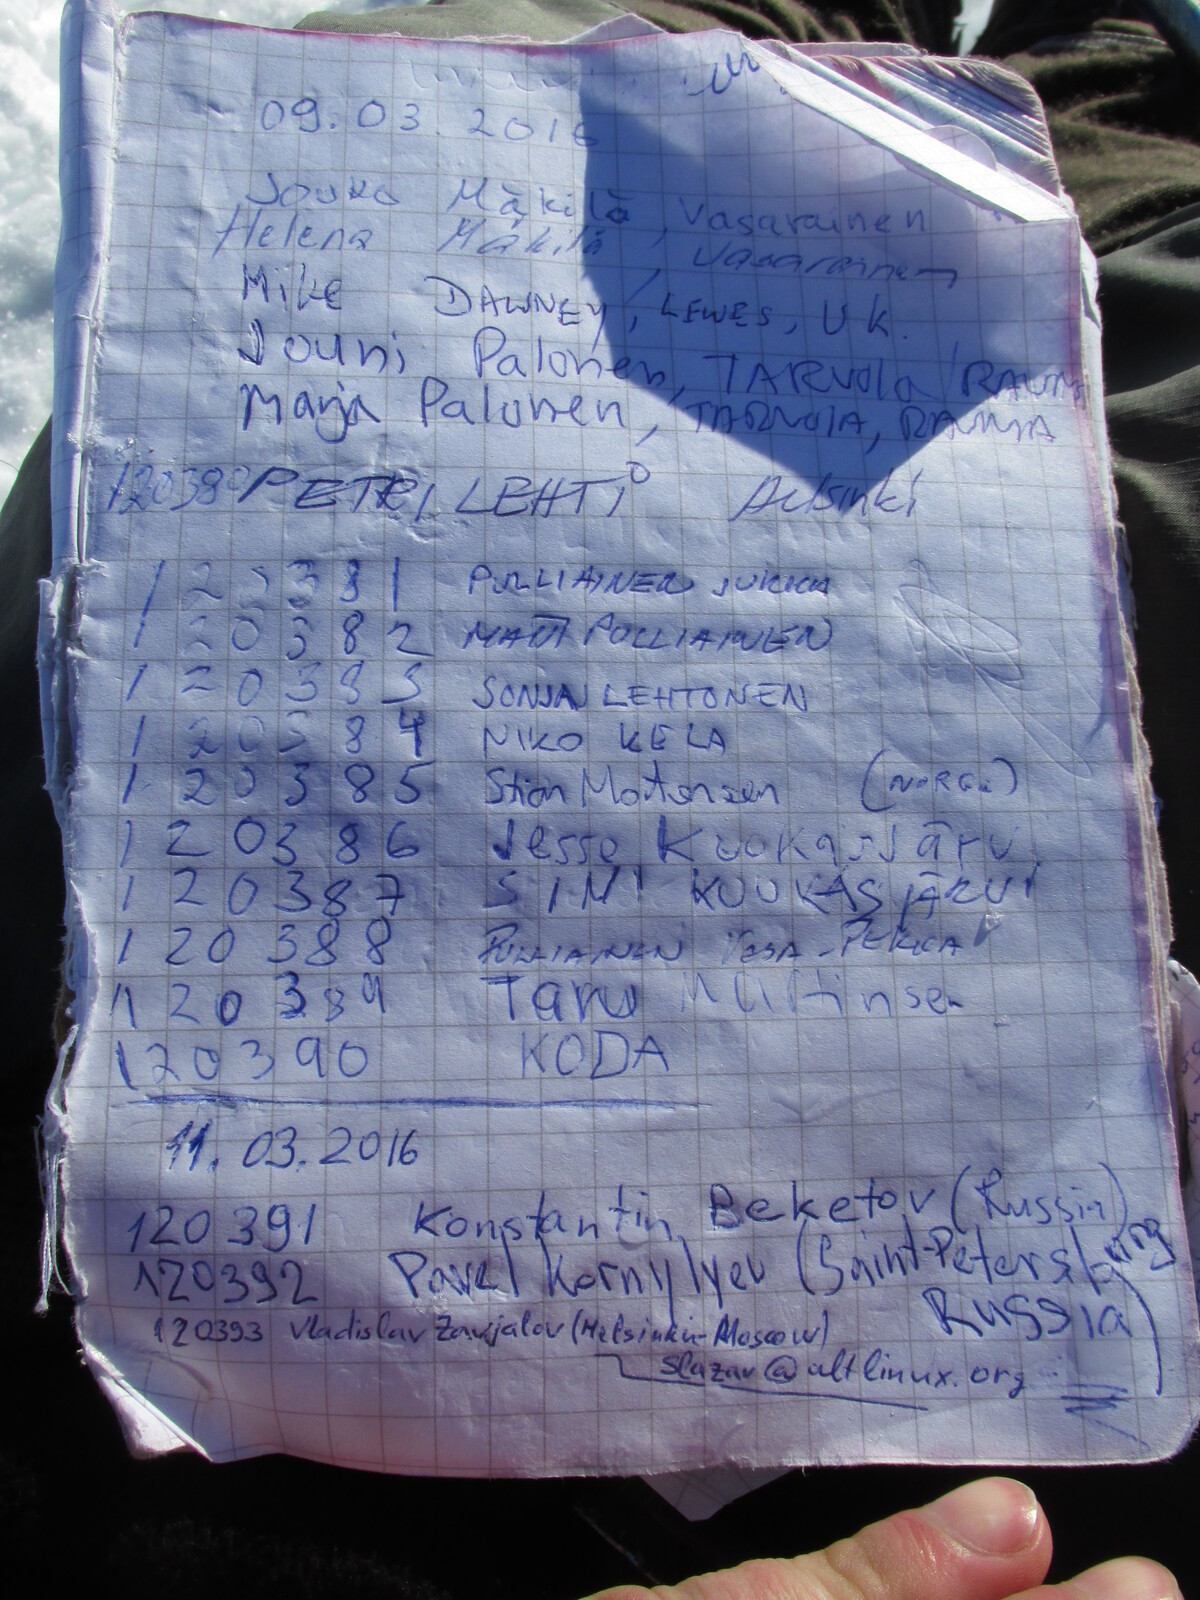 09.03.2016
Jouko Mäkilä, Vasarainen
Helena Mäkilä, Vasarainen
Mike DAWNEY, LEWES, UK.
Jouni Palonen, TARVOLA
Marja Palonen, TARVOLA,
120380 PETRI LEHTI Helsinki
120381 PULLIAINEN JUKKA
120382 PULLIAINEN
120383 SONJA LEHTONEN
120384 NIKO KELA
120385 Stian Mortensen (NORGE)
120386 Jesse Kuokasjärvi
120387 SINI KUUKASJÄRVI
120388 PULLIAINEN VESA-PEKKA
120389 Taru
120390 KODA
11.03.2016
120391 Konstantin Beketov (Russia)
120392 Pavel Kornylyev (Saint-Petersburg
Russia
120393 Vladislav Zavjalov (Helsinki-Moscow)
slazav@altlinux.org